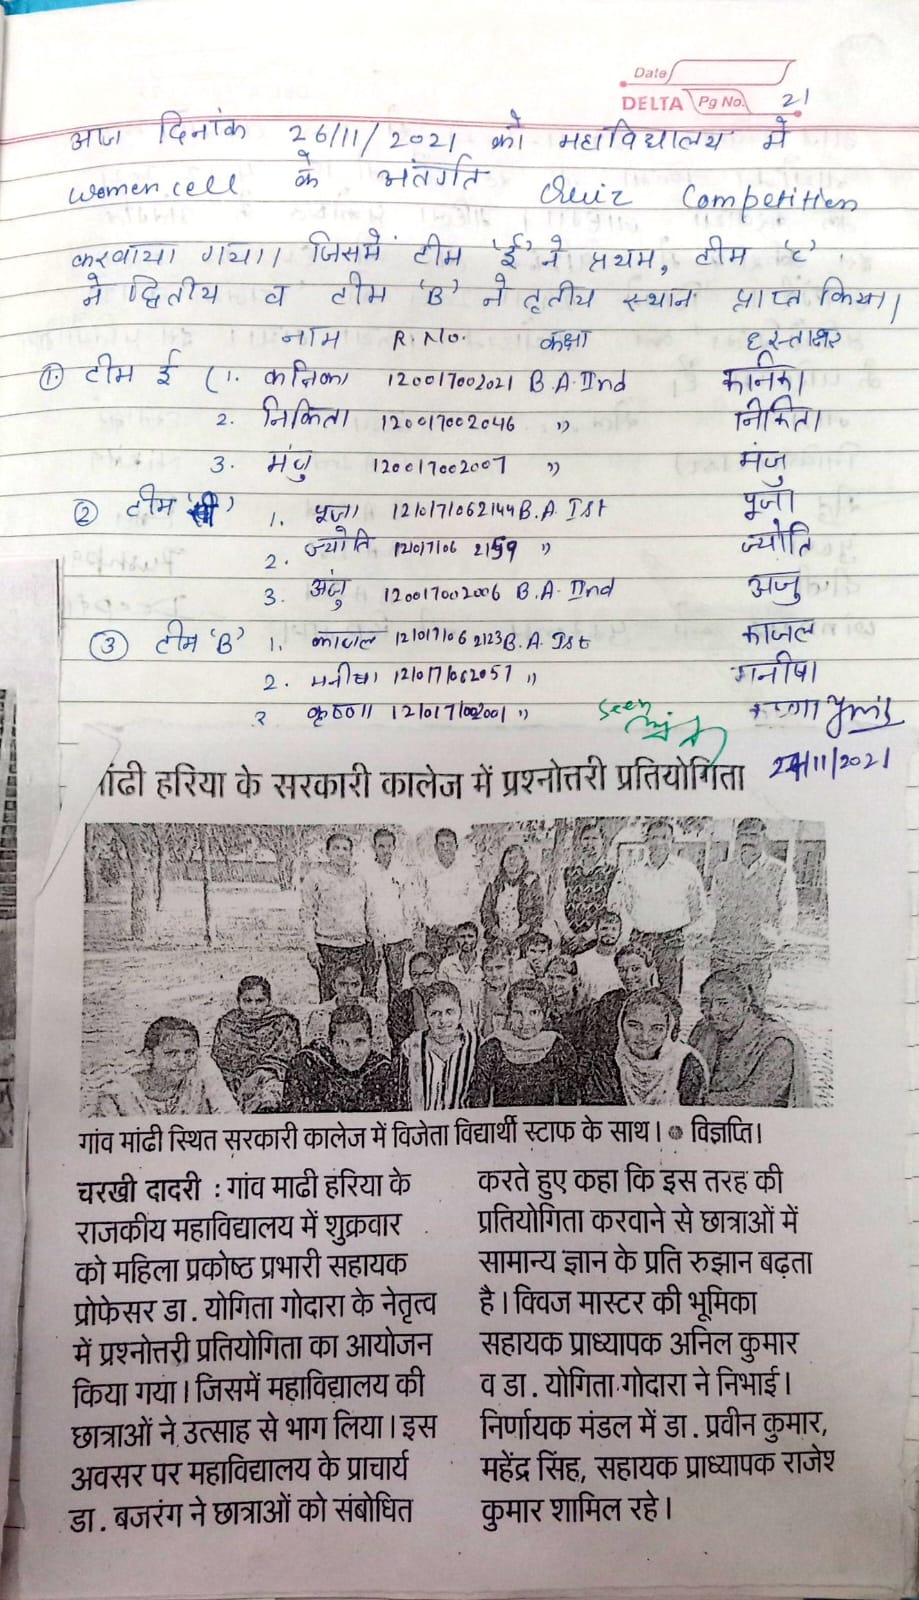 Date
DELTA Pg No. 21
आज दिनांक 26/11/2021 को महाविद्यालय में
women cell के अंतर्गत Quiz Competition
करवाया गया। जिसमें टीम 'ई' ने प्रथम, टीम 'C'
ने द्वितीय व टीम 'B' ने तृतीय स्थान प्राप्त किया।
नाम R.No. कक्षा हस्ताक्षर
① टीम ई (1. कनिका 120017002021 B.A.IInd कनिका
2. निकिता 120017002046 " निकिता
3. मंजु 120017002007 " मंजु
② टीम 'सी' 1. पूजा 1210171062144 B.A. Ist पूजा
2. ज्योति " ज्योति
3. अंजु 120017002006 B.A. IInd अंजु
③ टीम 'B' 1. काजल 1210171062123 B.A. Ist काजल
2. मनीषा 1210171062057 " मनीषा
3 कृष्णा 1210171002001 " seen
/11/2021
मांढी हरिया के सरकारी कालेज में प्रश्नोत्तरी प्रतियोगिता
गांव मांढी स्थित सरकारी कालेज में विजेता विद्यार्थी स्टाफ के साथ। ● विज्ञप्ति।
चरखी दादरी : गांव माढी हरिया के
राजकीय महाविद्यालय में शुक्रवार
को महिला प्रकोष्ठ प्रभारी सहायक
प्रोफेसर डा. योगिता गोदारा के नेतृत्व
में प्रश्नोत्तरी प्रतियोगिता का आयोजन
किया गया। जिसमें महाविद्यालय की
छात्राओं ने उत्साह से भाग लिया। इस
अवसर पर महाविद्यालय के प्राचार्य
डा. बजरंग ने छात्राओं को संबोधित
करते हुए कहा कि इस तरह की
प्रतियोगिता करवाने से छात्राओं में
सामान्य ज्ञान के प्रति रुझान बढ़ता
है। क्विज मास्टर की भूमिका
सहायक प्राध्यापक अनिल कुमार
व डा. योगिता गोदारा ने निभाई।
निर्णायक मंडल में डा. प्रवीन कुमार,
महेंद्र सिंह, सहायक प्राध्यापक राजेश
कुमार शामिल रहे।